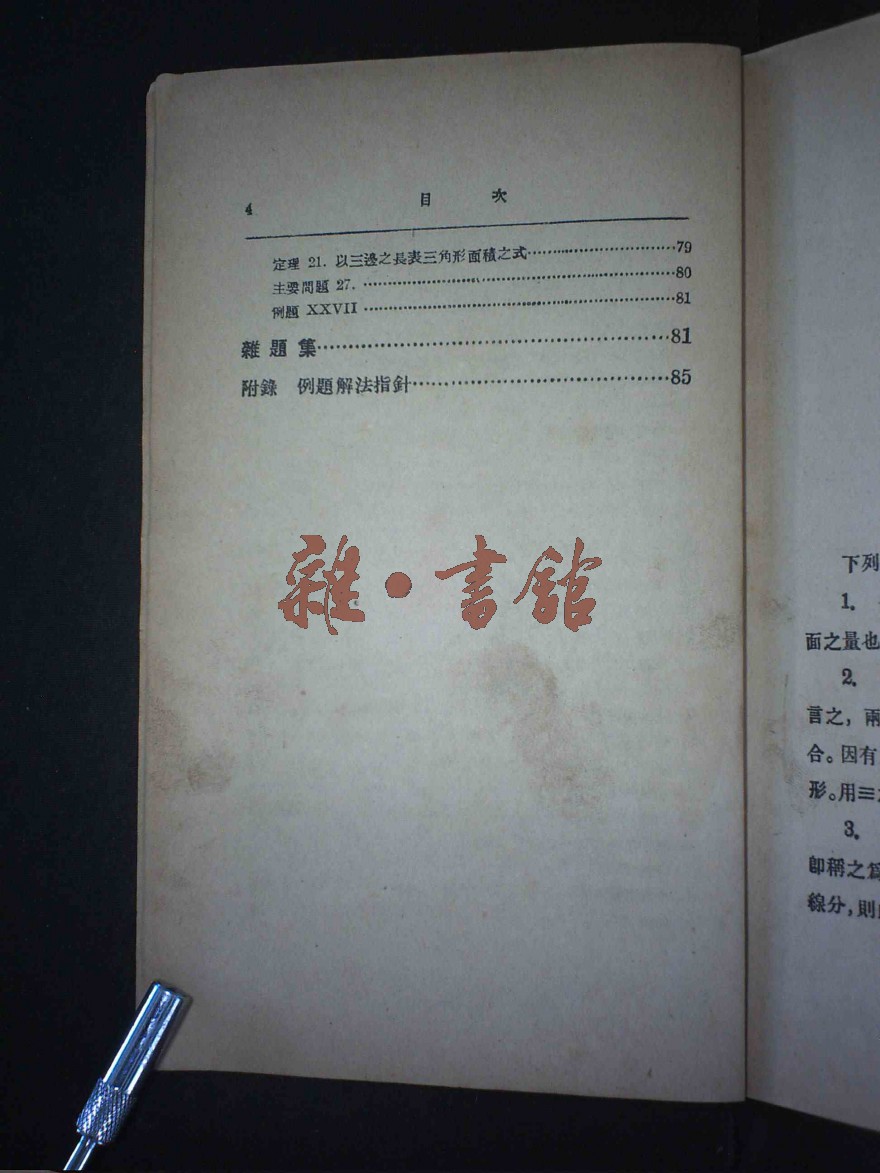 4 目 次
定理 21. 以三邊之長表三角形面積之式……………………79
主要問題 27. ……………………………………………80
例題 XXVII ……………………………………………81
雜 題 集……………………………………………81
附錄 例題解法指針……………………………………85
雜·書館
下列
1.
面之量也
2.
言之，兩
合。因有
形。用≡
3.
卽稱之爲
線分，則